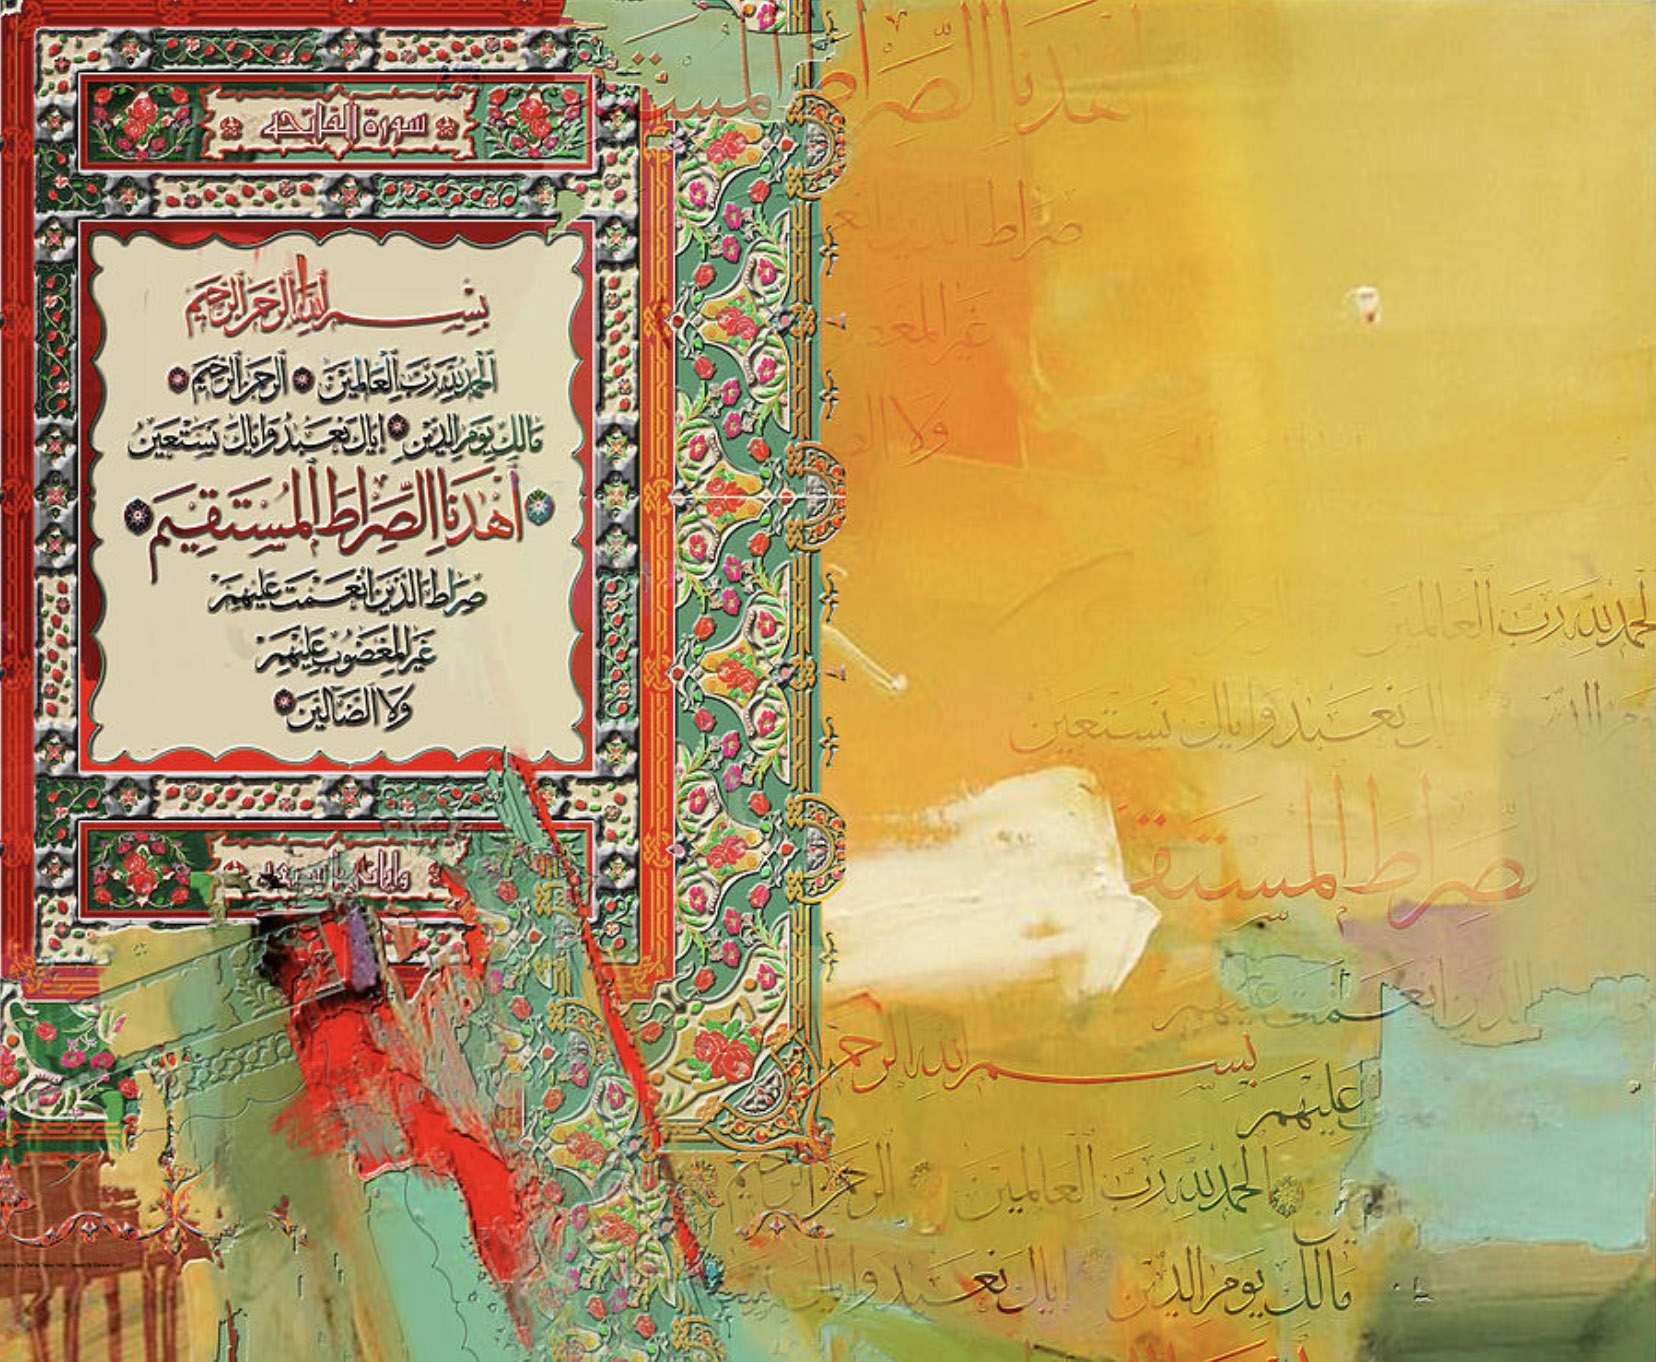 سورة الفاتحه
بسم الله الرحمن الرحيم
الحمد لله رب العالمين الرحمن الرحيم
مالك يوم الدين إياك نعبد وإياك نستعين
اهدنا الصراط المستقيم
صراط الذين انعمت عليهم
غير المغضوب عليهم
ولا الضالين
هدنا الصراط المست
صراط الذين انع
غير المغض
ولا ال
الحمد لله رب العالمين
نعبد واياك نستعين
صراط المستق
الذين انعمت عليهم
بسم الله الرحم
عليهم
الحمد لله رب العالمين الرحمن الرحيم
مالك يوم الدين إياك نعبد